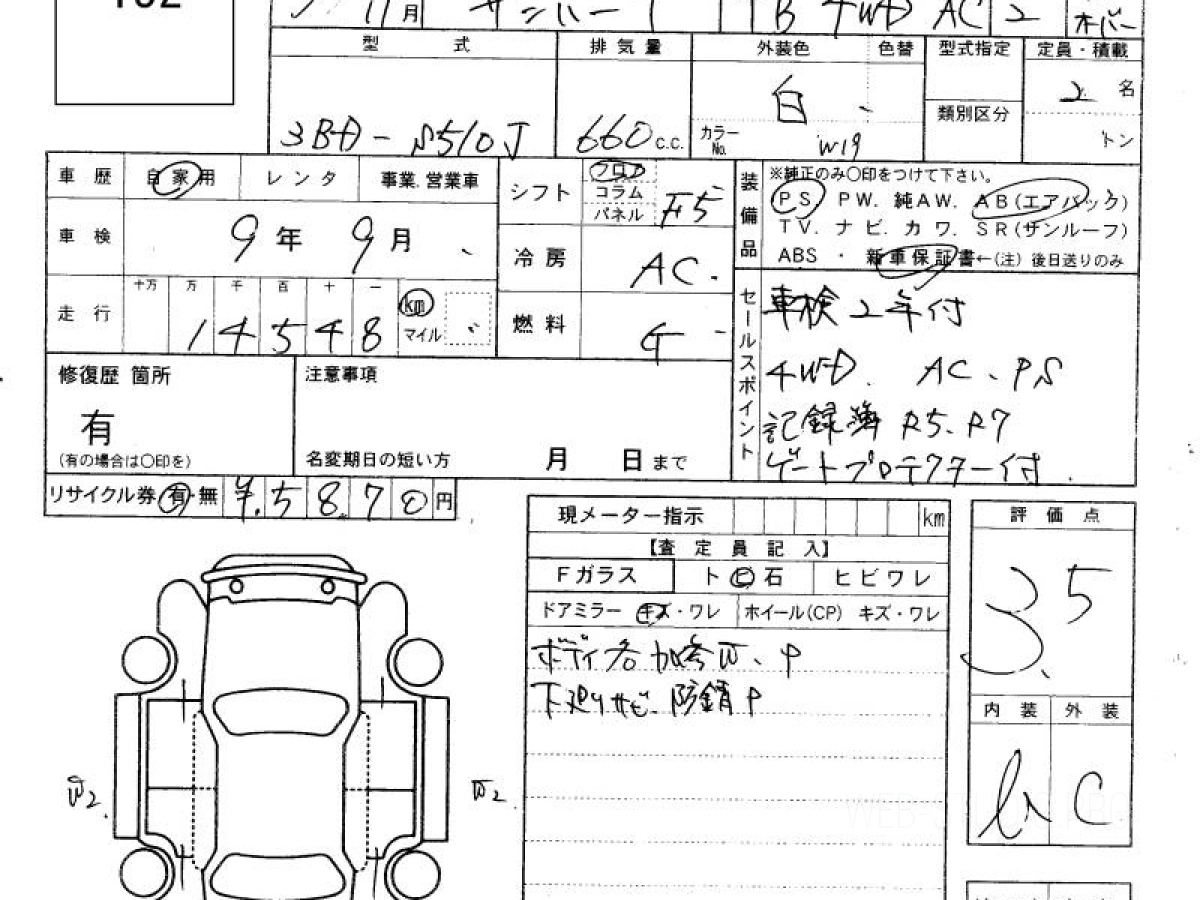 11月 サンバー TB 4WD AC 2
型式 排気量 外装色 色替 型式指定 定員・積載
3BD-S510J 660c.c. 白 カラーNo. W19 類別区分 2名 トン
車歴 自家用 レンタ 事業.営業車 シフト フロア コラム パネル F5
装備品 ※純正のみ〇印をつけて下さい。
PS PW. 純AW. AB(エアバック)
TV. ナビ. カワ. SR(サンルーフ)
ABS ・ 新車保証書←(注) 後日送りのみ
車検 9年9月 冷房 AC.
走行 十万 万 千 百 十 一 14548 km マイル 燃料 G
セールスポイント 車検2年付
4WD. AC、PS
記録簿 R5、R7
ゲートプロテクター付.
修復歴 箇所 注意事項
有
(有の場合は〇印を) 名変期日の短い方 月 日まで
リサイクル券 有・無 ¥.5870円
現メーター指示 km
【査定員記入】
Fガラス トビ石 ヒビワレ
ドアミラー キズ・ワレ ホイール(CP) キズ・ワレ
下廻りサビ、防錆P
評価点
3.5
内装 外装
C
W2 W2